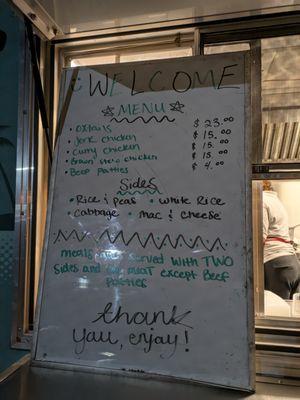 WELCOME
MENU
• Oxtails $ 23.00
• Jerk chicken $ 15.00
• Curry chicken $ 15.00
• Brown stew chicken $ 15.00
• Beef Patties $ 4.00
Sides
• Rice & peas • white Rice
• Cabbage • mac & cheese
meals are served with TWO
Sides and one meat except Beef
Patties
thank
you, enjoy!